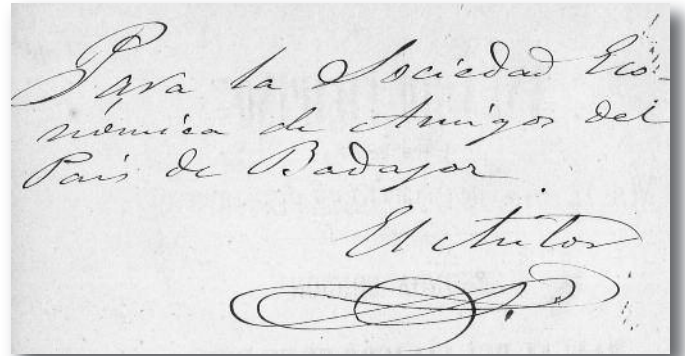 Para la Sociedad Eco-
nómica de Amigos del
País de Badajoz
El Autor